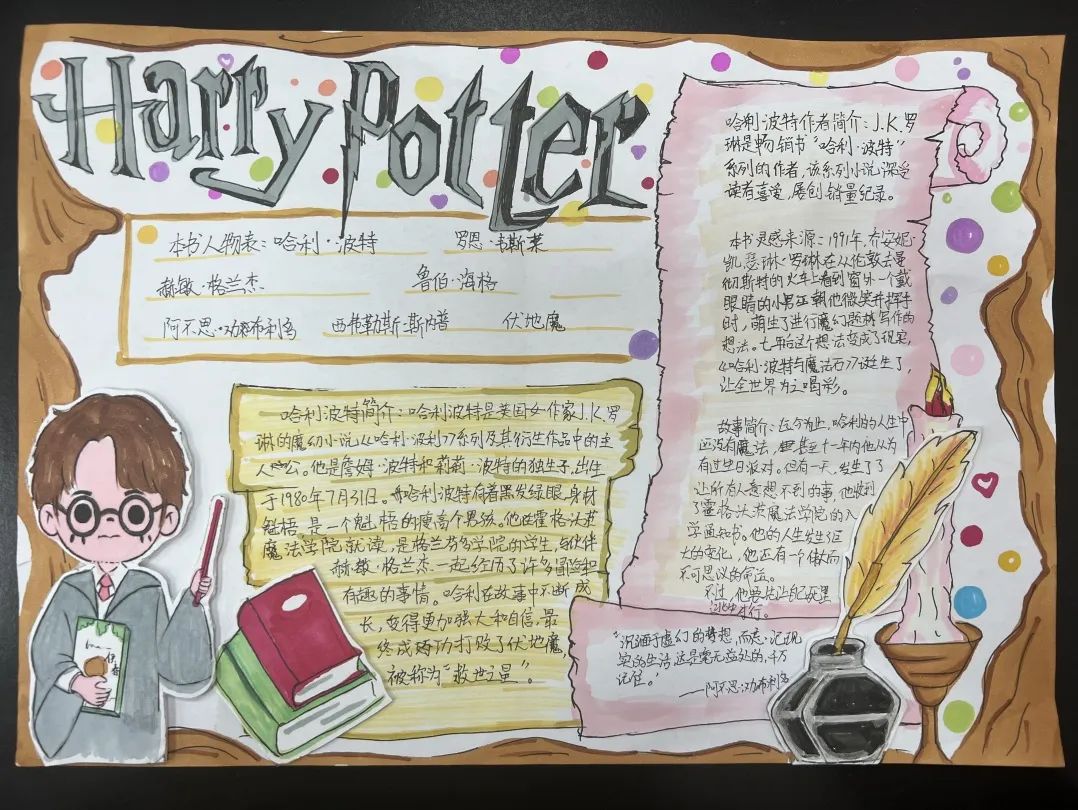 Harry Potter
本书人物表：哈利·波特 罗恩·韦斯莱
赫敏·格兰杰 鲁伯·海格
阿不思·邓布利多 西弗勒斯·斯内普 伏地魔
哈利波特简介：哈利波特是英国女作家J.K.罗
琳的魔幻小说《哈利·波利》系列及其衍生作品中的主
人公。他是詹姆·波特和莉莉·波特的独生子，出生
于1980年7月31日。哈利波特有着黑发绿眼，身材
魁梧，是一个魁梧的瘦高个男孩。他在霍格沃茨
魔法学院就读，是格兰芬多学院的学生，与伙伴
赫敏·格兰杰一起经历了许多冒险和
有趣的事情。哈利在故事中不断成
长，变得更加强大和自信，最
终成功打败了伏地魔，
被称为“救世之星”。
哈利·波特作者简介：J.K.罗
琳是畅销书“哈利·波特”
系列的作者，该系列小说深受
读者喜爱，屡创销量纪录。
本书灵感来源：1991年，乔安妮·
凯瑟琳·罗琳在从伦敦去曼
彻斯特的火车上看到窗外一个戴
眼睛的小男巫朝他微笑并挥手
时，萌生了进行魔幻题材写作的
想法。七年后这个想法变成了现实，
《哈利·波特与魔法石》诞生了，
让全世界为之喝彩。
故事简介：迄今为止，哈利的人生中
还没有魔法，甚至十一年内他从为
有过生日派对。但有一天，发生了了
让所有人意想不到的事，他收到
了霍格沃茨魔法学院的入
学通知书。他的人生发生了巨
大的变化，他还有一个伟大而
不可思议的命运。
不过，他要先让自己
才行。
“沉湎于虚幻的梦想，而忘记现
实的生活，这是毫无益处的，千万
记住。”
——阿不思·邓布利多